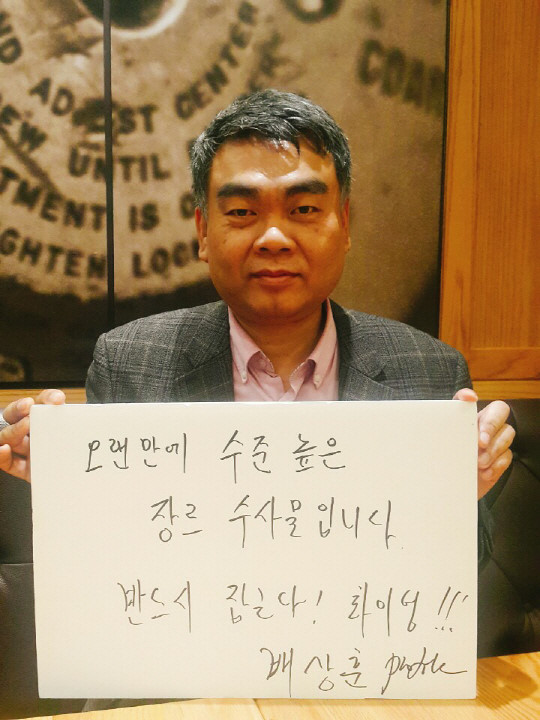 ND ADJUST CENTER
REW UNTIL
TMENT IS
GHTEN LOC
COAR
오랜만에 수준 높은
장르 수사물입니다.
반드시 잡는다! 화이팅!!!
배상훈